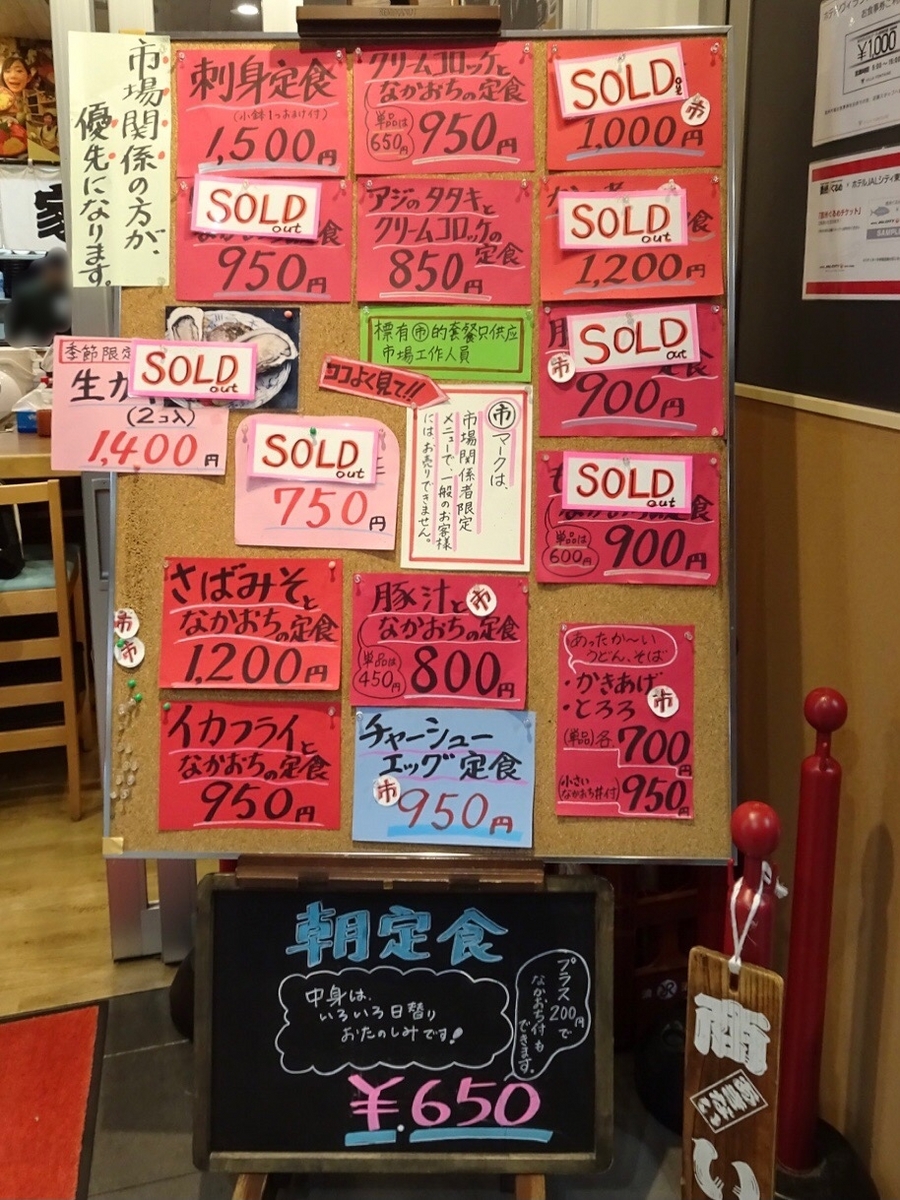 市場関係の方が、
優先になります。
刺身定食
(小鉢1つおまけ付)
1,500円
クリームコロッケと
なかおちの定食
単品は
650円
950円
SOLD
市
1,000円
SOLD
out
950円
アジのタタキと
クリームコロッケの
定食
850円
SOLD
out
食
1,200円
標有市的套餐只供应
市場工作人員
季節限定
生カ
SOLD
out
(2コ入)
1,400円
ココよく見て!!
市マークは、
市場関係者限定
メニューで、一般のお客様
にはお売りできません。
SOLD
out
市
定食
900円
SOLD
out
750円
SOLD
out
単品は
600円
900円
さばみそと
なかおちの定食
1,200円
豚汁と
市
なかおちの定食
単品は
450円
800円
市
市
あったか〜い
うどん、そば
・かきあげ
・とろろ
市
(単品)各700円
(小さい
なかおち丼付)
950円
イカフライと
なかおちの定食
950円
チャーシュー
エッグ定食
市
950円
朝定食
中身は、
いろいろ日替り
おたのしみです!
プラス200円で
なかおち付も
できます。
¥650
商
い
¥1,000
SAMPLE
家